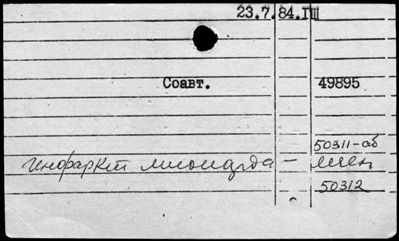 23.7.84.III
Соавт. 49895
50311-об
Инфаркт миокарда -
50312